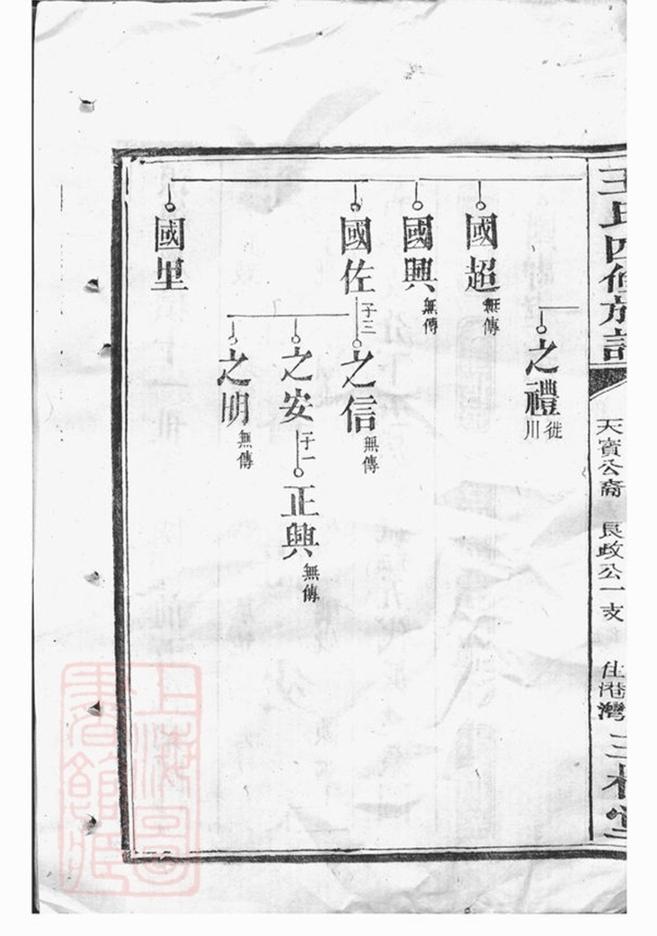 王氏四修族譜
天寶公裔 良政公一支 住港灣 三槐堂
之禮 徙川
國超 無傳
國興 無傳
國佐 子三
之信 無傳
之安 子一
正興 無傳
之明 無傳
國里
上海圖書館藏